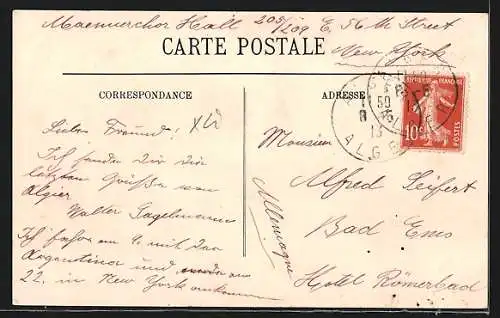 Maennerchor Hall 203/209 E. 56th Street
New York
CARTE POSTALE
CORRESPONDANCE
ADRESSE
RÉPUBLIQUE FRANÇAISE
10c
POSTES
ALGER
13
Lieber Freund!
Ich sende Dir die
letzten Grüße von
Algier
Walter
Ich fahre am 9. mit der
Argentina und am
22. in New York ankommen
Monsieur
Alfred Seifert
Bad Ems
Hotel Römerbad
Allemagne